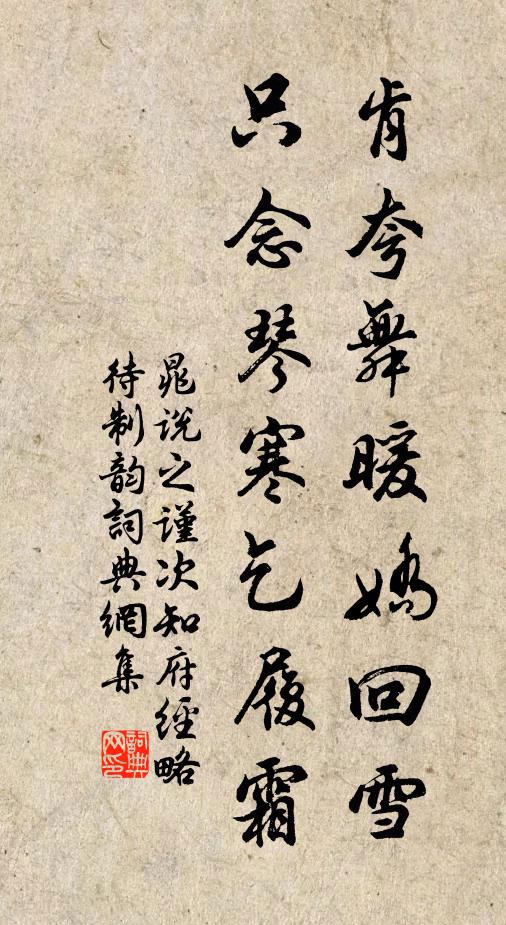 肯夸舞暖嬌回雪
只念琴寒乞履霜
晁说之谨次知府經略
待制韵詞典網集
詞典
网印